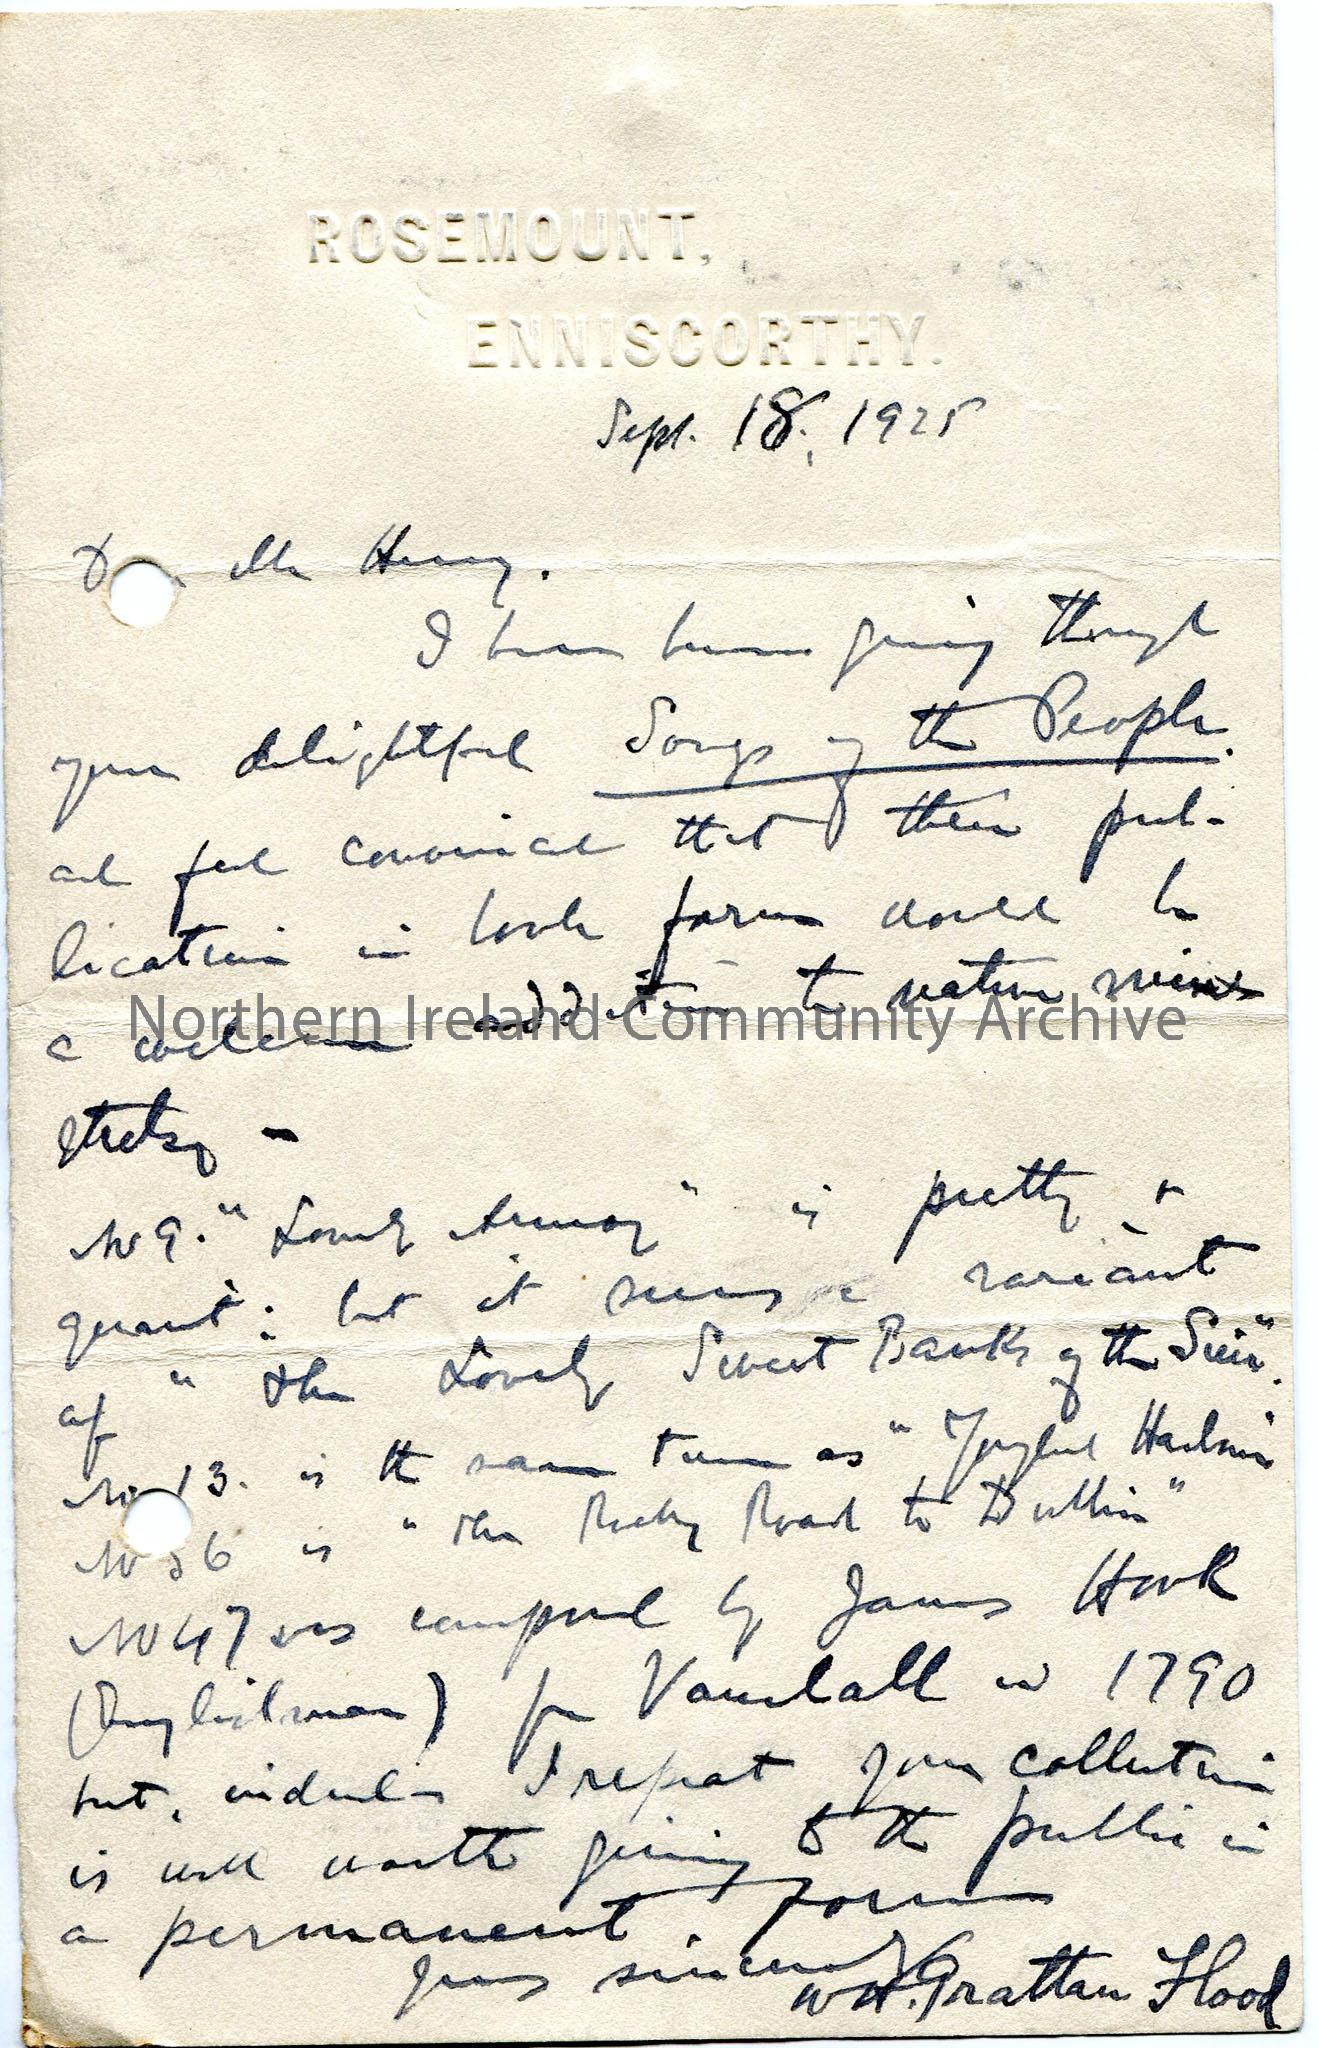 ROSEMOUNT,
ENNISCORTHY.
Sept. 18, 1925
Mr Henry.
I have been going through
your delightful Songs of the People.
and feel convinced that their pub-
lication in book form would be
a welcome addition to native min-
strelsy -
Northern Ireland Community Archive
No 9. "Lovely Armoy" is pretty &
quaint: but it seems a variant
of "The Lovely Sweet Banks of the Suir".
No 13. is the same tune as "Youghal Harbour"
No 36 is "The Rocky Road to Dublin"
No 47 was composed by James Hook
(Englishman) for Vauxhall in 1790
but, indeed, I repeat your collection
is well worth giving to the public in
a permanent form
Yours sincerely
Wm H. Grattan Flood